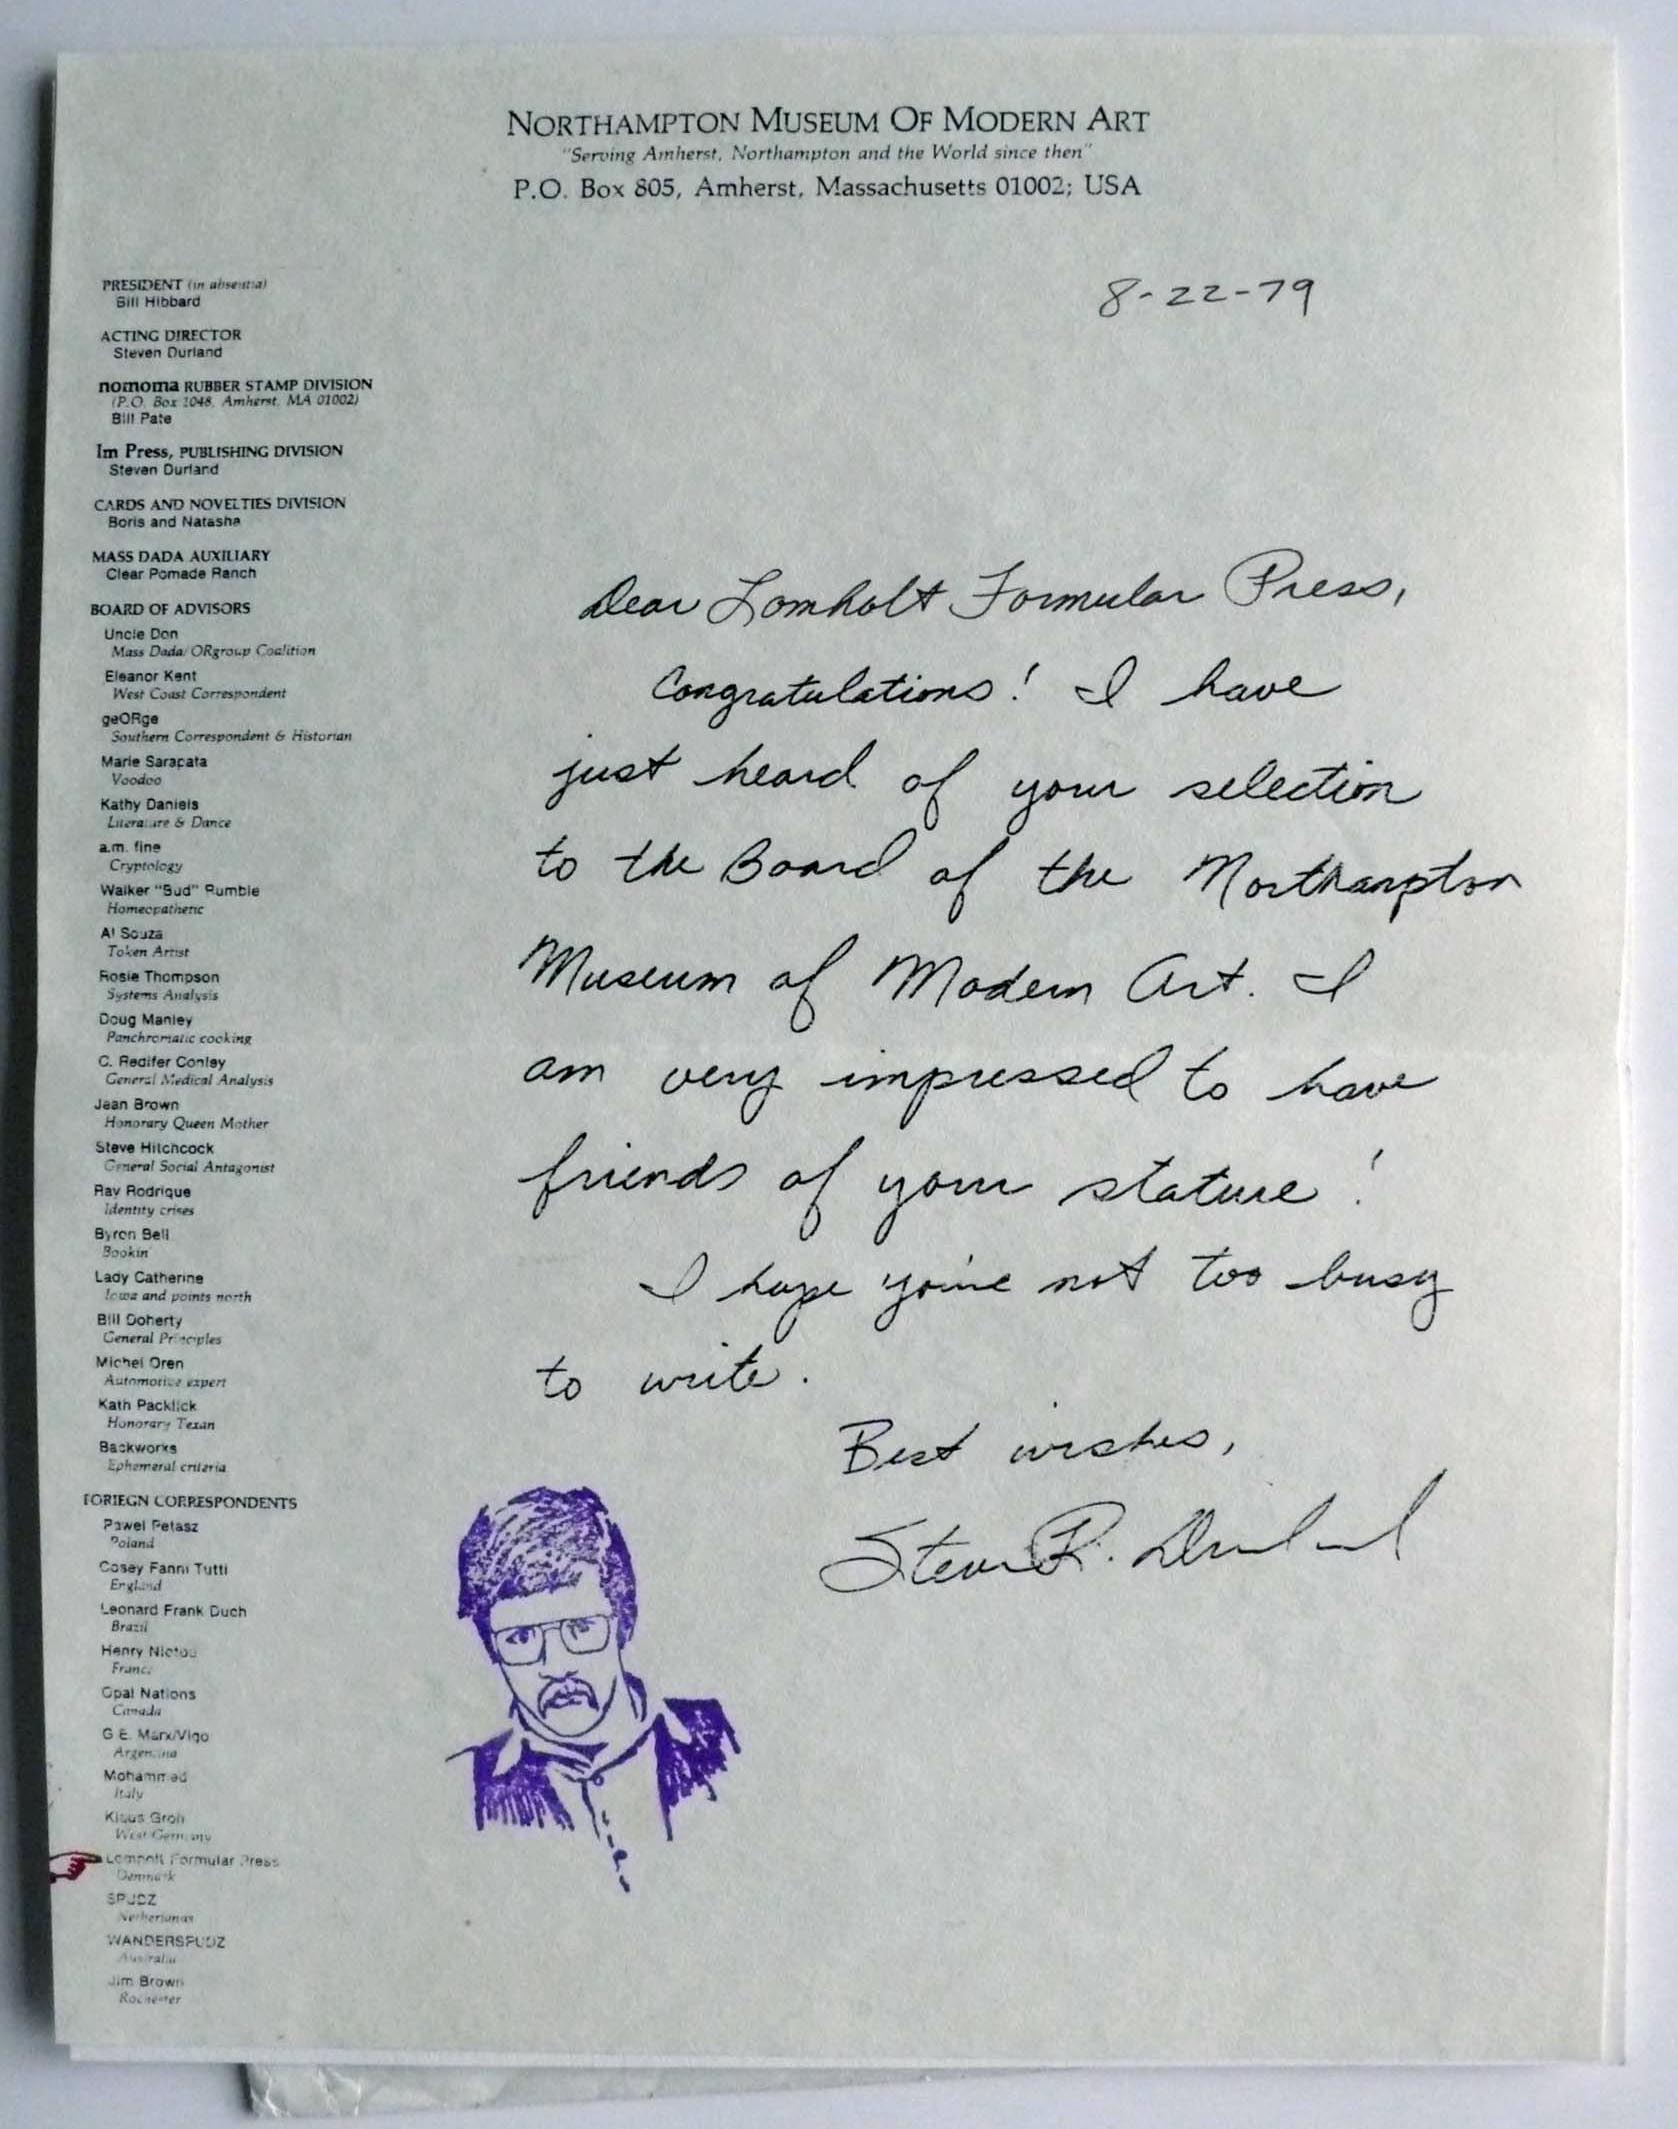 NORTHAMPTON MUSEUM OF MODERN ART
"Serving Amherst, Northampton and the World since then"
P.O. Box 805, Amherst, Massachusetts 01002; USA
PRESIDENT (in absentia)
Bill Hibbard
ACTING DIRECTOR
Steven Durland
nomoma RUBBER STAMP DIVISION
(P.O. Box 1048, Amherst, MA 01002)
Bill Pate
Im Press, PUBLISHING DIVISION
Steven Durland
CARDS AND NOVELTIES DIVISION
Boris and Natasha
MASS DADA AUXILIARY
Clear Pomade Ranch
BOARD OF ADVISORS
Uncle Don
Mass Dada/ORgroup Coalition
Eleanor Kent
West Coast Correspondent
geORge
Southern Correspondent & Historian
Marie Sarapata
Voodoo
Kathy Daniels
Literature & Dance
a.m. fine
Cryptology
Walker "Bud" Rumble
Homeopathetic
Al Souza
Token Artist
Rosie Thompson
Systems Analysis
Doug Manley
Panchromatic cooking
C. Redifer Conley
General Medical Analysis
Jean Brown
Honorary Queen Mother
Steve Hitchcock
General Social Antagonist
Ray Rodrique
Identity crises
Byron Bell
Bookin'
Lady Catherine
Iowa and points north
Bill Doherty
General Principles
Michel Oren
Automotive expert
Kath Packlick
Honorary Texan
Backworks
Ephemeral criteria
FORIEGN CORRESPONDENTS
Pawel Petasz
Poland
Cosey Fanni Tutti
England
Leonard Frank Duch
Brazil
Henry
France
Opal Nations
Canada
G.E. Marx/Vigo
Argentina
Mohammed
Italy
Klaus Groh
West Germany
Lomholt Formular Press
Denmark
SPUDZ
Netherlands
WANDERSPUDZ
Australia
Jim Brown
Rochester
8-22-79
Dear Lomholt Formular Press,
Congratulations! I have
just heard of your selection
to the Board of the Northampton
Museum of Modern Art. I
am very impressed to have
friends of your stature!
I hope you're not too busy
to write.
Best wishes,
Steven R. Durland